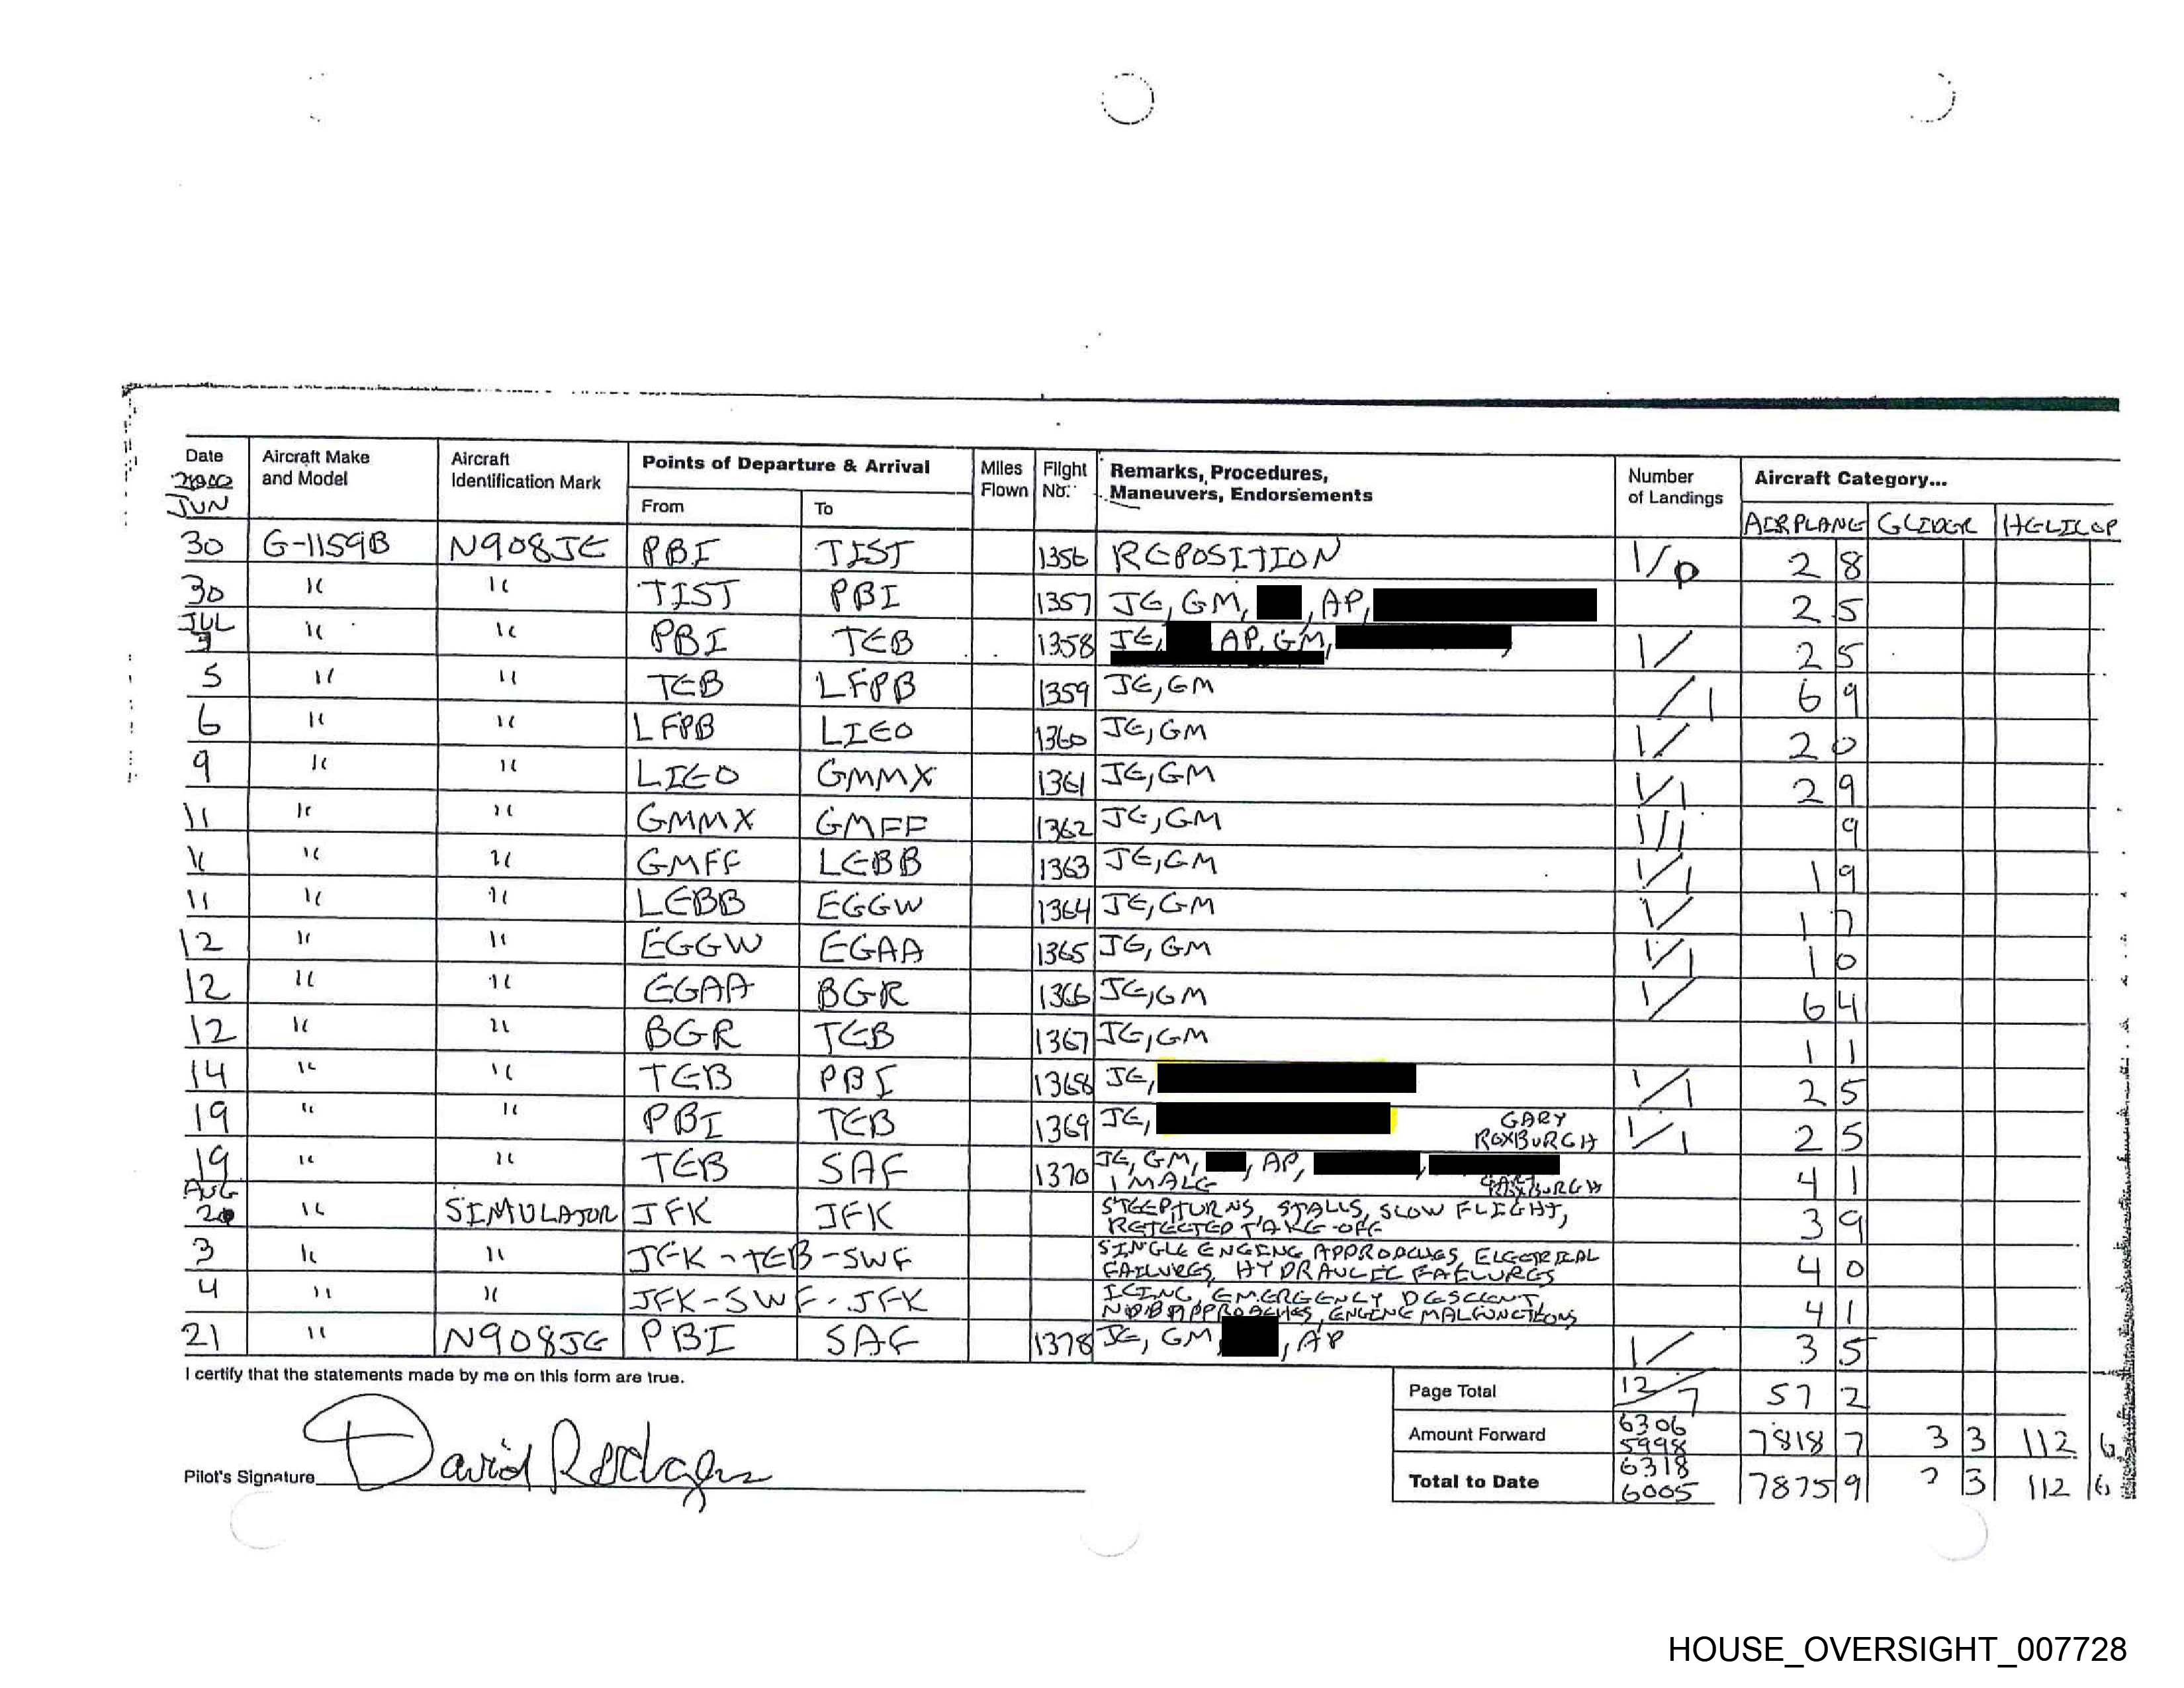 Date Aircraft Make and Model Aircraft Identification Mark Points of Departure & Arrival Miles Flown Flight No. Remarks, Procedures, Maneuvers, Endorsements Number of Landings Aircraft Category...
2000 JUN From To AIRPLANE GLIDER HELICOP
30 G-1159B N908JE PBI TIST 1356 REPOSITION 1/0 2 8
30 " " TIST PBI 1357 JE, GM, , AP, 2 5
JUL
" " PBI TEB 1358 JE, AP, GM, 1/ 2 5
5 " " TEB LFPB 1359 JE, GM /1 6 9
6 " " LFPB LIEO 1360 JE, GM 1/ 2 0
9 " " LIEO GMMX 1361 JE, GM 1/1 2 9
11 " " GMMX GMFF 1362 JE, GM 1/1 9
11 " " GMFF LEBB 1363 JE, GM 1/1 1 9
11 " " LEBB EGGW 1364 JE, GM 1/ 1 7
12 " " EGGW EGAA 1365 JE, GM 1/1 1 0
12 " " EGAA BGR 1366 JE, GM 1/ 6 4
12 " " BGR TEB 1367 JE, GM 1 1
14 " " TEB PBI 1368 JE, 1/1 2 5
19 " " PBI TEB 1369 JE, GARY ROXBURGH 1/1 2 5
19 " " TEB SAF 1370 JE, GM, , AP, , 4 1
1 MALE GARY ROXBURGH
AUG
2 " SIMULATOR JFK JFK STEEP TURNS, STALLS, SLOW FLIGHT, 3 9
REJECTED TAKE-OFF
3 " " JFK-TEB-SWF SINGLE ENGINE APPROACHES, ELECTRICAL 4 0
FAILURES, HYDRAULIC FAILURES
4 " " JFK-SWF-JFK ICING, EMERGENCY DESCENT, 4 1
APPROACHES, ENGINE MALFUNCTIONS
21 " N908JE PBI SAF 1378 JE, GM, , AP 1/ 3 5
I certify that the statements made by me on this form are true.
Page Total 12/7 57 2
Amount Forward 6306 5998 7818 7 3 3 112 6
Pilot's Signature David Rodgers
Total to Date 6318 6005 7875 9 3 112 6
HOUSE_OVERSIGHT_007728